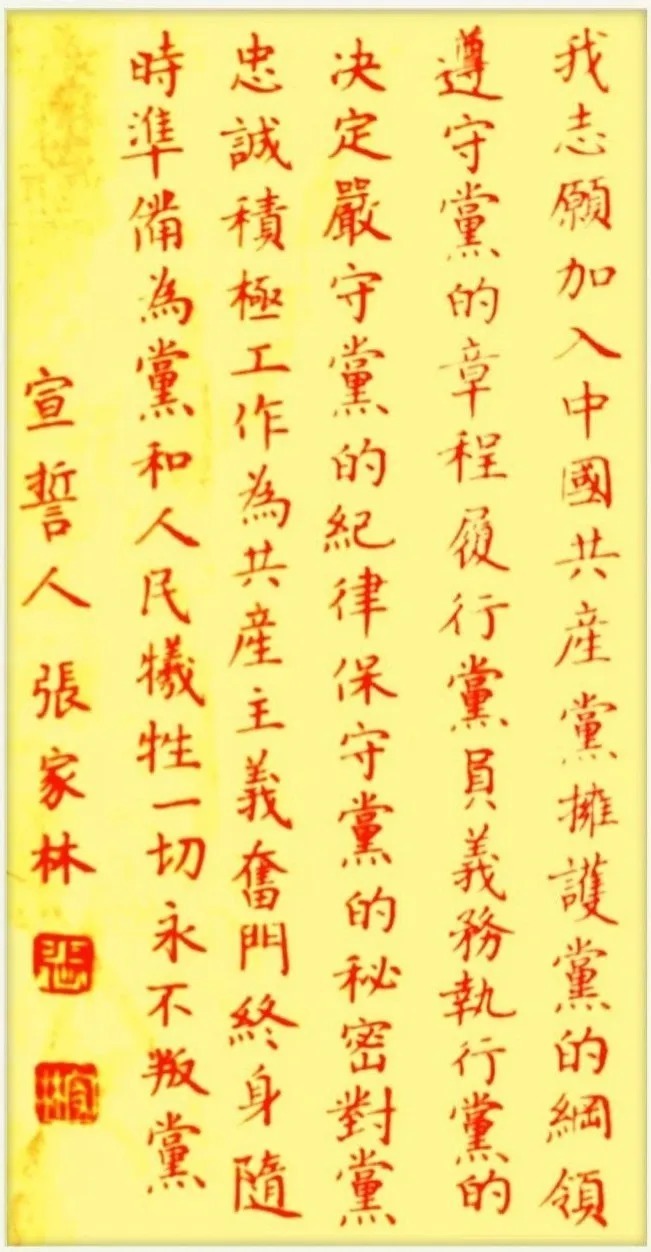 我志願加入中國共産黨擁護黨的綱領
遵守黨的章程履行黨員義務執行黨的
决定嚴守黨的紀律保守黨的秘密對黨
忠誠積極工作為共産主義奮鬥終身隨
時準備為黨和人民犧牲一切永不叛黨
宣誓人 張家林